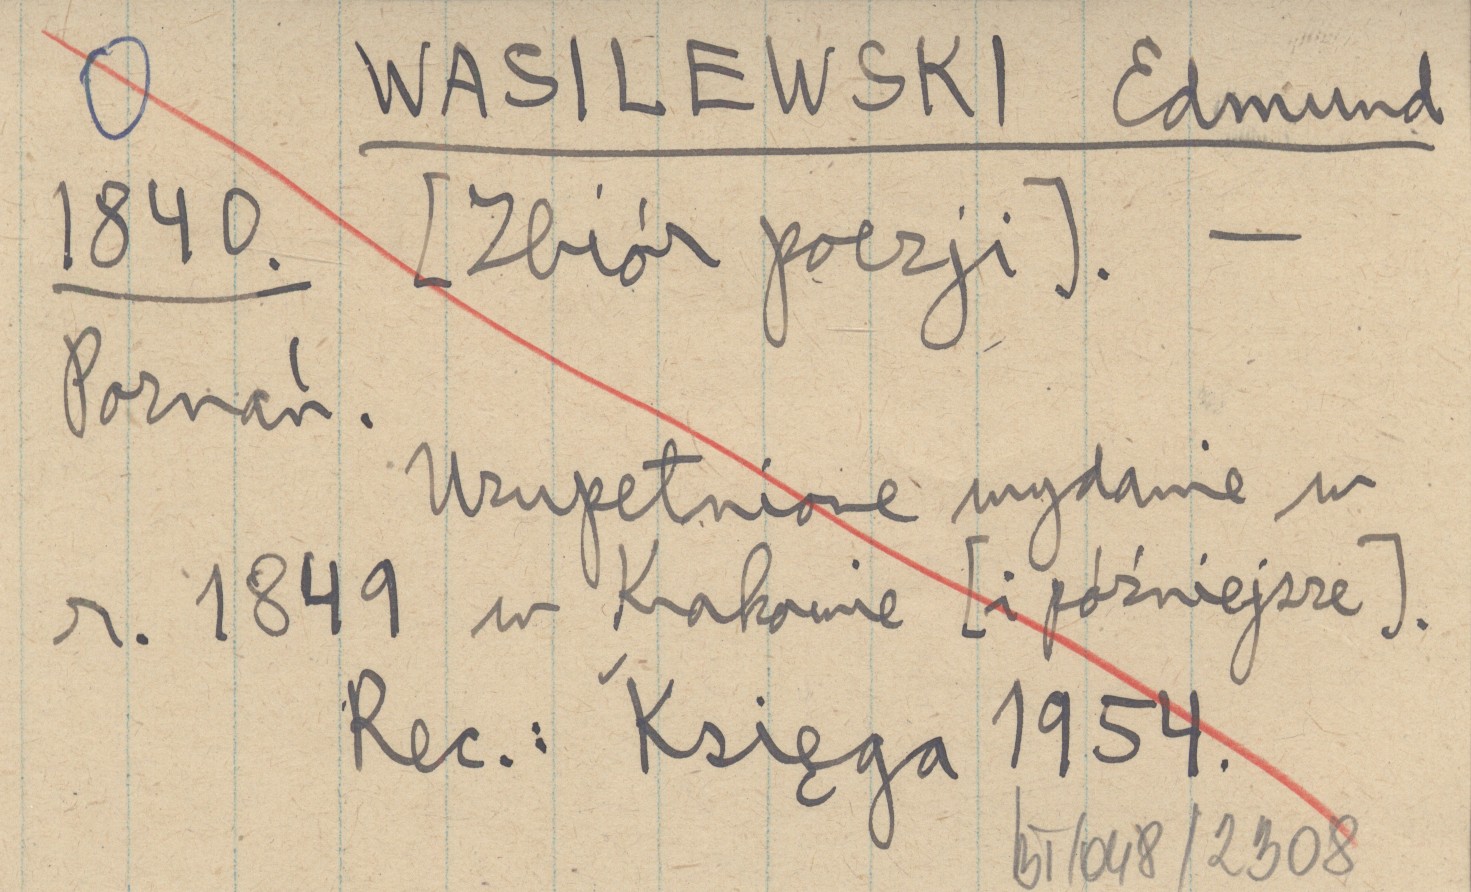 0 WASILEWSKI Edmund
1840. [Zbiór poezji]. —
Poznań.
Uzupełnione wydanie w
r. 1849 w Krakowie [i późniejsze].
Rec.: Księga 1954.
BT/048/2308